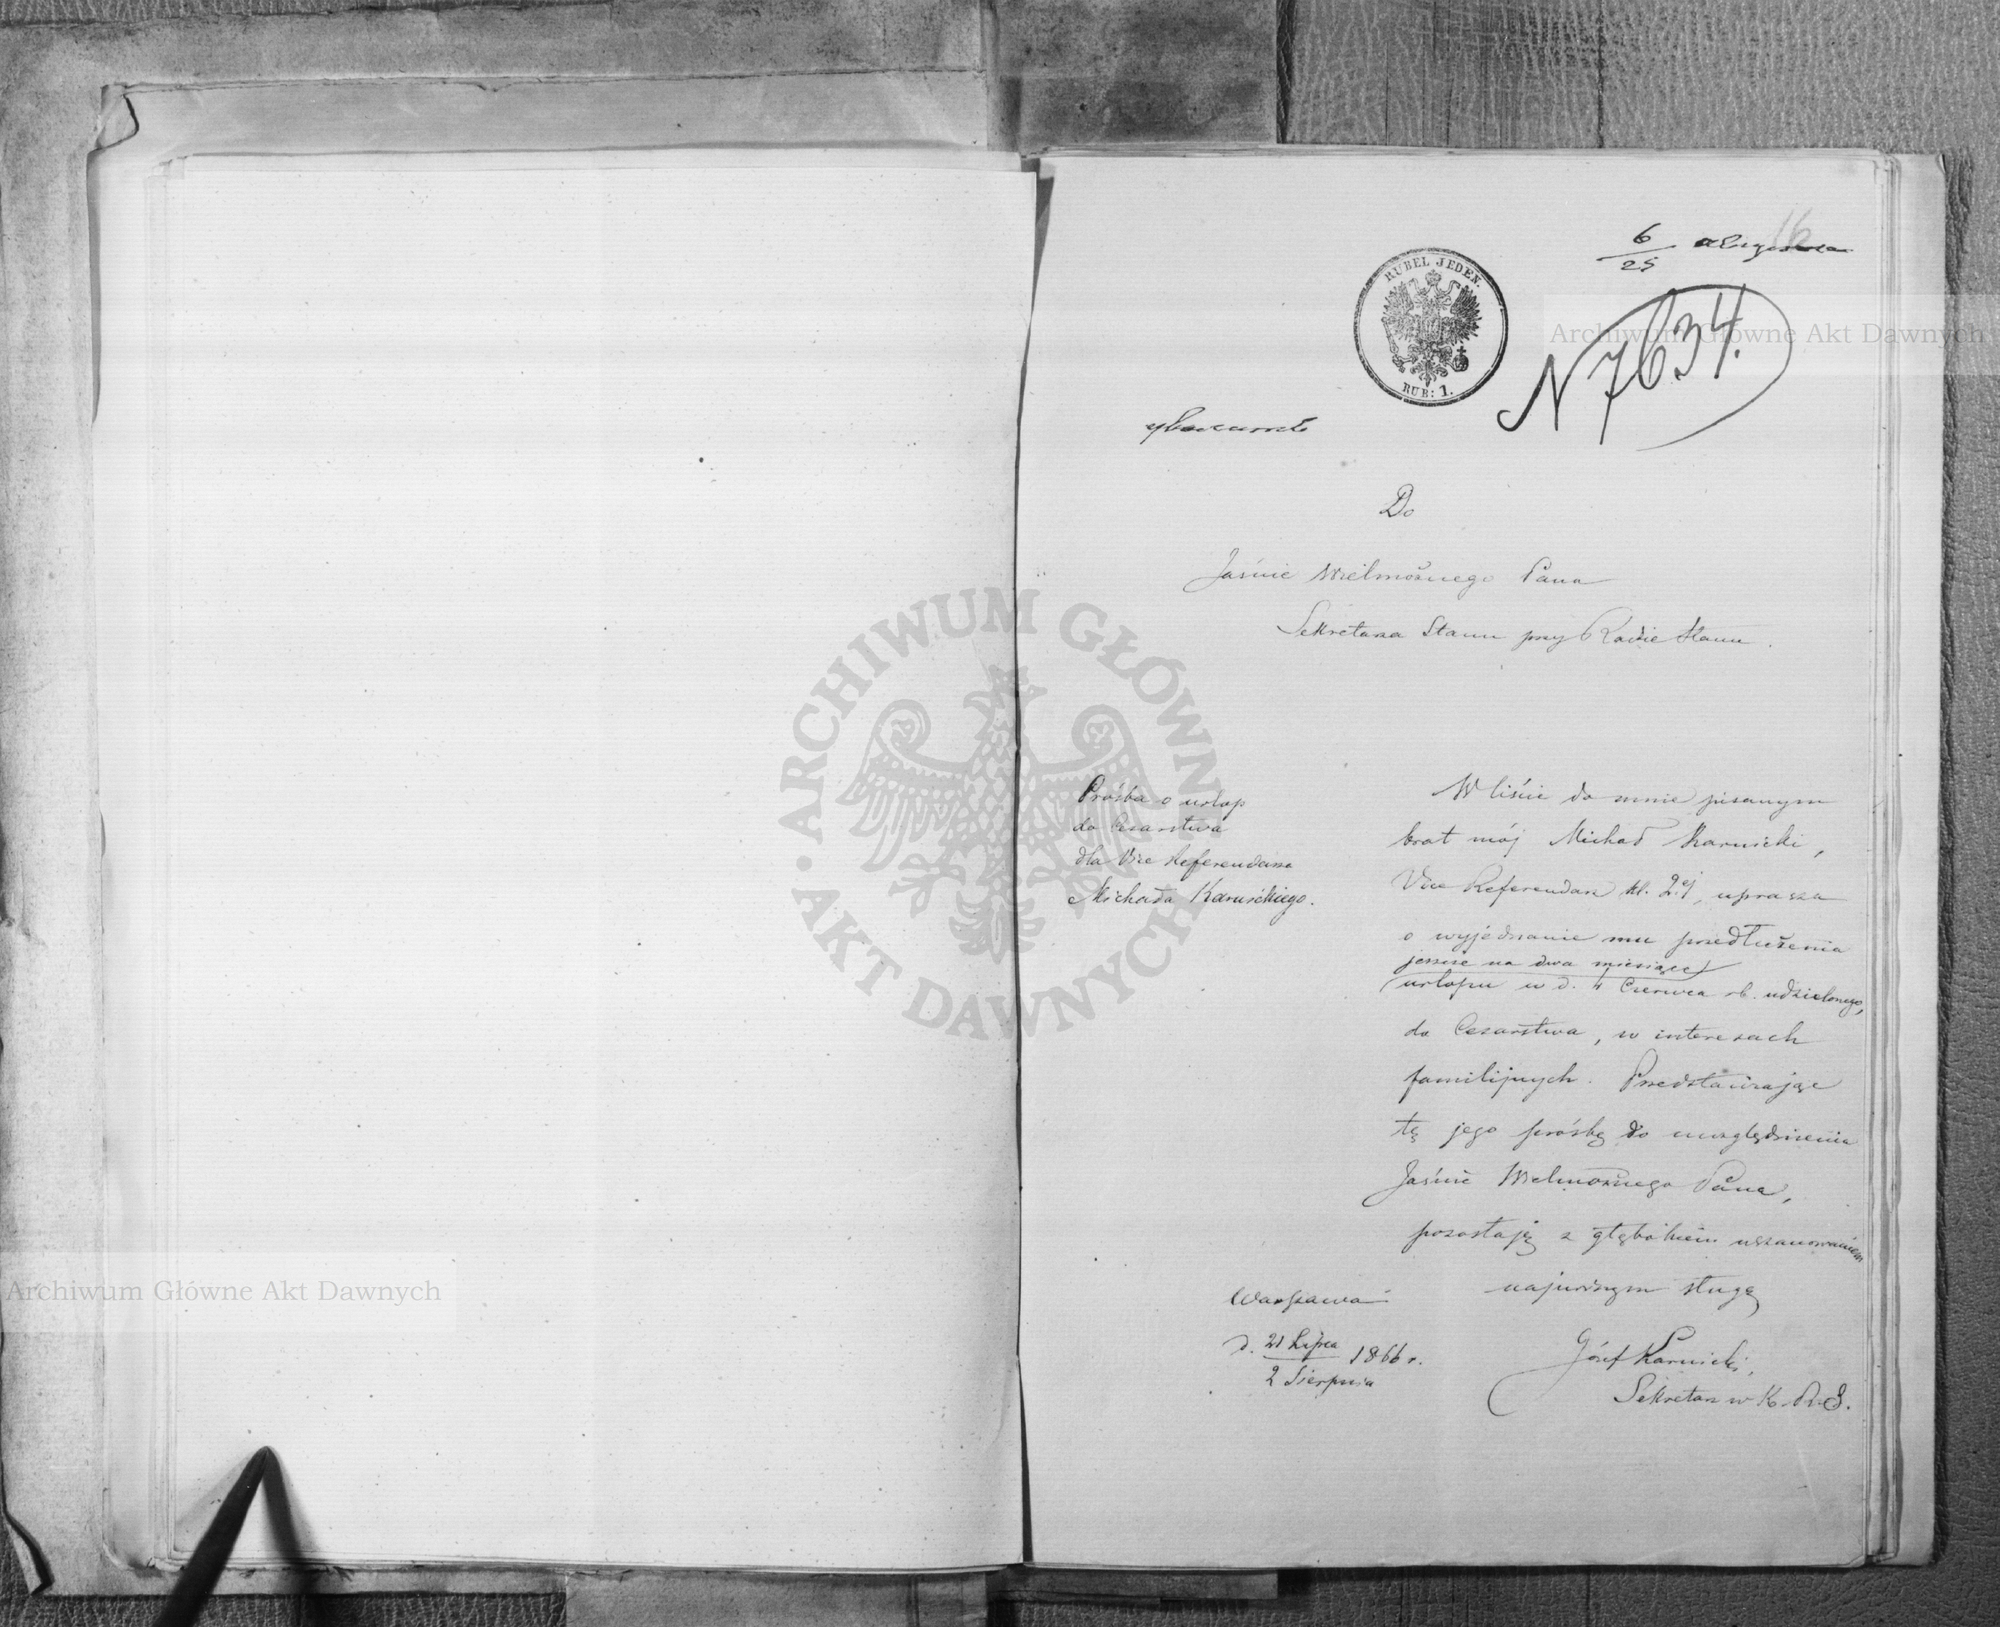 16
6/25 августа
RUBEL JEDEN.
RUB: 1.
N 7634.
Do
Jaśnie Wielmożnego Pana
Sekretarza Stanu przy Radie Stanu.
Prośba o urlop
do Cesarstwa
dla Vice Referendarza
Michała Karnickiego.
W liście do mnie pisanym
brat mój Michał Karnicki,
Vice Referendarz kl. 2ej, uprasza
o wyjednanie mu przedłużenia
jeszcze na dwa miesiące
urlopu w d. 4 Czerwca rb. udzielonego,
do Cesarstwa, w interesach
familijnych. Przedstawiając
tę jego prośbę do uwzględnienia
Jaśnie Wielmożnego Pana,
pozostaję z głębokiem uszanowaniem
najniższym sługą
Warszawa
d. 21 Lipca/2 Sierpnia 1866 r.
Józef Karnicki,
Sekretarz w K. R. S.
ARCHIWUM GŁÓWNE AKT DAWNYCH
Archiwum Główne Akt Dawnych
Archiwum Główne Akt Dawnych